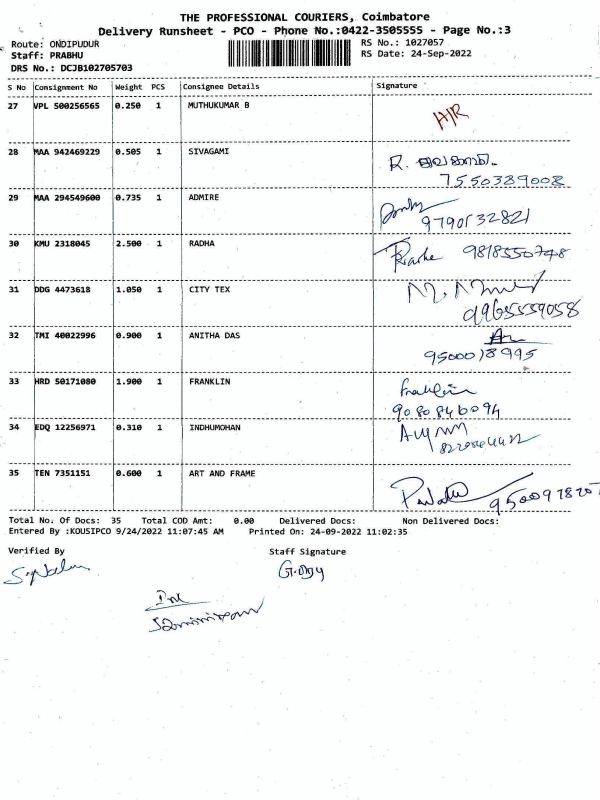 THE PROFESSIONAL COURIERS, Coimbatore
Delivery Runsheet - PCO - Phone No.:0422-3505555 - Page No.:3
Route: ONDIPUDUR
RS No.: 1027057
Staff: PRABHU
RS Date: 24-Sep-2022
DRS No.: DCJB102705703
S No Consignment No Weight PCS Consignee Details Signature
27 VPL 500256565 0.250 1 MUTHUKUMAR B H/R
28 MAA 942469229 0.505 1 SIVAGAMI R.
7550389008
29 MAA 294549600 0.735 1 ADMIRE
9790132821
30 KMU 2318045 2.500 1 RADHA 9818550748
31 DDG 4473618 1.050 1 CITY TEX
9965559058
32 TMI 40022996 0.900 1 ANITHA DAS
9500018995
33 HRD 50171080 1.900 1 FRANKLIN Franklin
9080846094
34 EDQ 12256971 0.310 1 INDHUMOHAN
35 TEN 7351151 0.600 1 ART AND FRAME
Total No. Of Docs: 35 Total COD Amt: 0.00 Delivered Docs: Non Delivered Docs:
Entered By :KOUSIPCO 9/24/2022 11:07:45 AM Printed On: 24-09-2022 11:02:35
Verified By Staff Signature